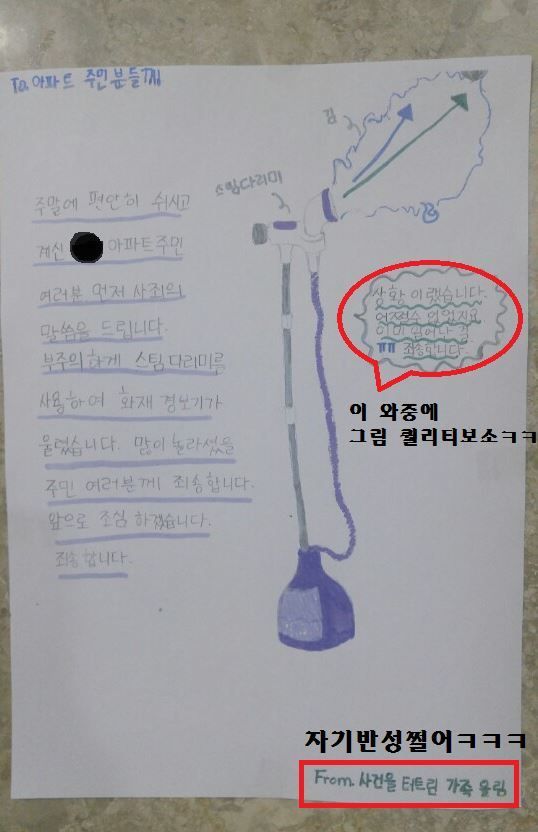 To. 아파트 주민분들께
주말에 편안히 쉬시고
계신 아파트주민
여러분 먼저 사죄의
말씀을 드립니다.
부주의하게 스팀다리미를
사용하여 화재 경보기가
울렸습니다. 많이 놀라셨을
주민 여러분께 죄송합니다.
앞으로 조심하겠습니다.
죄송합니다.
스팀다리미
김
상황 이랬습니다.
어쩔수 없었지요
이미 일어난 걸
ㅠㅠ 죄송합니다.
이 와중에
그림 퀄리티보소ㅋㅋ
자기반성쩔어ㅋㅋㅋ
From. 사건을 터트린 가족 올림